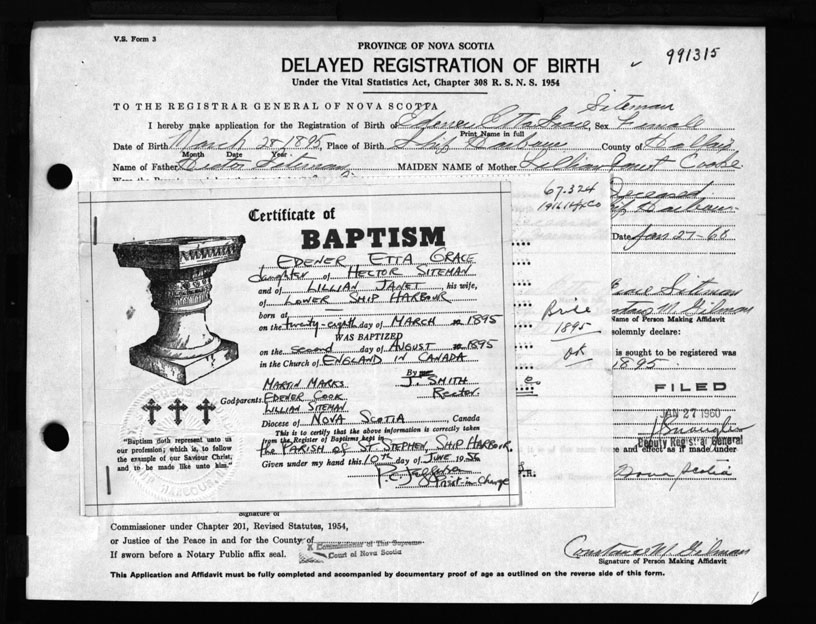 V.S. Form 3
PROVINCE OF NOVA SCOTIA
991315
DELAYED REGISTRATION OF BIRTH
Under the Vital Statistics Act, Chapter 308 R. S. N. S. 1954
TO THE REGISTRAR GENERAL OF NOVA SCOTIA
Siteman
I hereby make application for the Registration of Birth of Edener Etta Grace Sex Female
Print Name in full
Date of Birth March 28 1895, Place of Birth Ship Harbour County of Halifax
Month Date Year
Name of Father Hector Siteman MAIDEN NAME of Mother Lillian Janet Cooke
67.324
Deceased
Ship Harbour
Date Jan 27-60
Certificate of
BAPTISM
EDENER ETTA GRACE
daughter of HECTOR SITEMAN
and of LILLIAN JANET his wife,
of LOWER SHIP HARBOUR
born at
on the twenty-eighth day of MARCH 1895
WAS BAPTIZED
on the second day of AUGUST 1895
in the Church of ENGLAND IN CANADA
By
MARTIN MARKS J. SMITH
Godparents EDENER COOK Rector
LILLIAN SITEMAN
Diocese of NOVA SCOTIA, Canada
This is to certify that the above information is correctly taken
from the Register of Baptisms kept in
the PARISH of ST STEPHEN, SHIP HARBOUR.
Given under my hand this 10th day of JUNE 1956
Priest in Charge
"Baptism doth represent unto us
our profession; which is, to follow
the example of our Saviour Christ,
and to be made like unto him."
Grace Siteman
Constance M. Gilman
Name of Person Making Affidavit
solemnly declare:
Bride
1895
OK
is sought to be registered was
1895
FILED
JAN 27 1960
Deputy Registrar General
and effect as if made under
Nova Scotia
Signature of
Commissioner under Chapter 201, Revised Statutes, 1954,
or Justice of the Peace in and for the County of
A Commissioner of The Supreme
Court of Nova Scotia
If sworn before a Notary Public affix seal.
Constance M. Gilman
Signature of Person Making Affidavit
This Application and Affidavit must be fully completed and accompanied by documentary proof of age as outlined on the reverse side of this form.